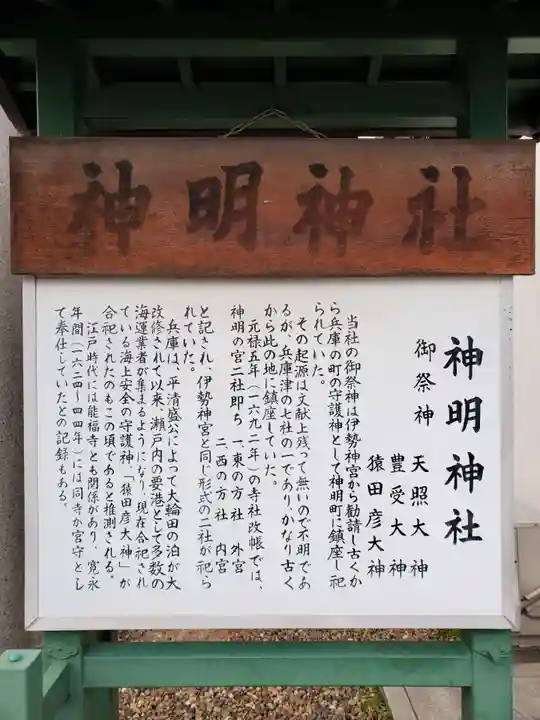 神明神社
神明神社
御祭神 天照大神
豊受大神
猿田彦大神
当社の御祭神は伊勢神宮から勧請し古くか
ら兵庫の町の守護神として神明町に鎮座し祀
られていた。
その起源は文献上残って無いので不明であ
るが、兵庫津の七社の一であり、かなり古く
から此の地に鎮座していた。
元禄五年(一六九二年)の寺社改帳では、
神明の宮二社即ち 一、東の方 社 外宮
二、西の方 社 内宮
と記され、伊勢神宮と同じ形式の二社が祀ら
れていた。
兵庫は、平清盛公によって大輪田の泊が大
改修されて以来、瀬戸内の要港として多数の
海運業者が集まるようになり、現在合祀され
ている海上安全の守護神、「猿田彦大神」が
合祀されたのもこの頃であると推測される。
江戸時代には能福寺とも関係があり、寛永
年間(一六二四~四四年)には同寺が宮守とし
て奉仕していたとの記録もある。